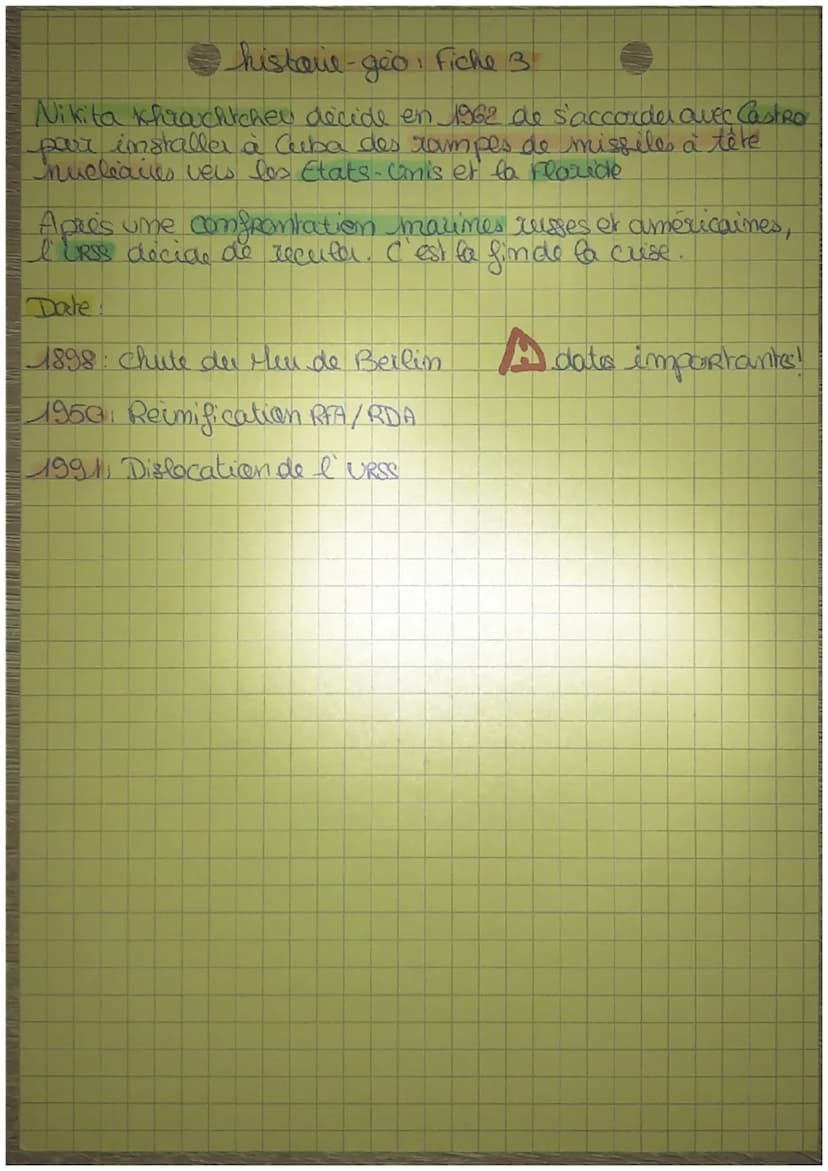 histoire-géo : Fiche 3
Nikita Khrachtchev décide en 1962 de s'accorder avec Castro
pour installer à Cuba des rampes de missiles à tête
nucléaires vers les États-Unis et la Floride
Après une confrontation marines russes et américaines,
l'URSS décide de reculer. C'est la fin de la crise.
Date :
1898 : Chute du Mur de Berlin
dates importantes!
1950 : Réunification RFA/RDA
1991 : Dislocation de l'URSS